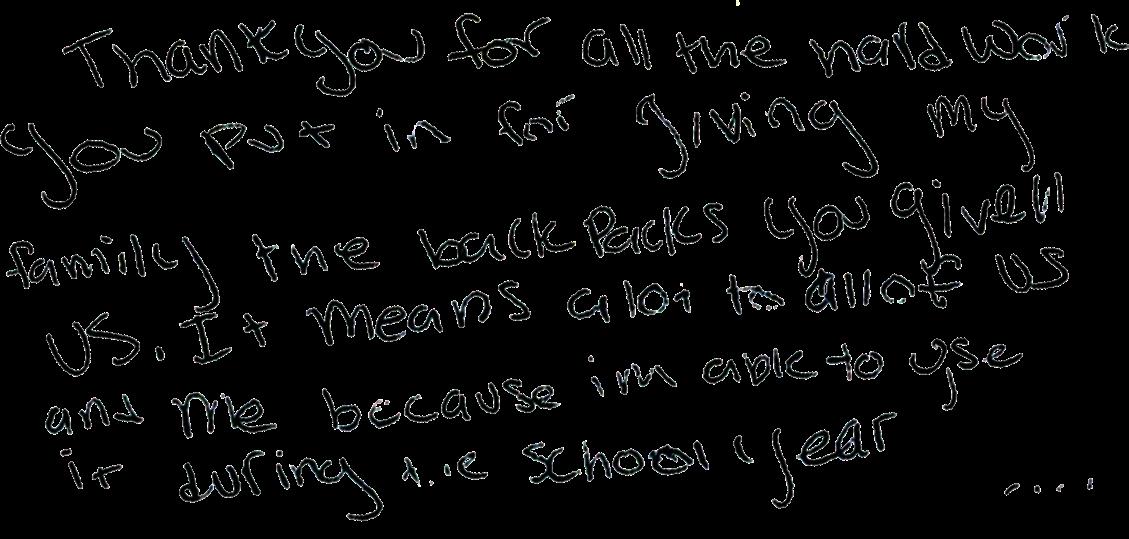 Thank you for all the hard work
you put in for giving my
family the back Packs you given
US. It means alot to all of US
and me because im able to use
it during the school year
....